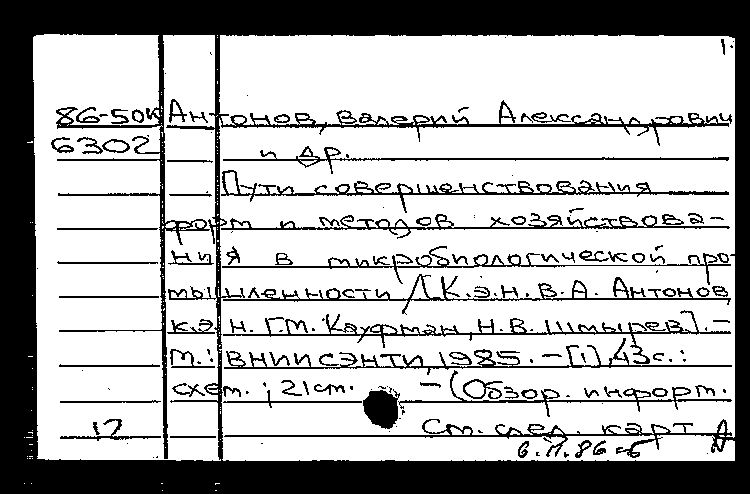 1.
86-50к Антонов, Валерий Александрович
6302 и др.
Пути совершенствования
форм и методов хозяйствова-
ния в микробиологической про-
мышленности / [К.э.н. В.А. Антонов,
к.э.н. Г.М. Кауфман, Н.В. Шмырев]. -
М.: ВНИИСЭНТИ, 1985. - [1], 43 с.:
схем.; 21 см. - (Обзор. информ.
12 См. след. карт
6.11.86